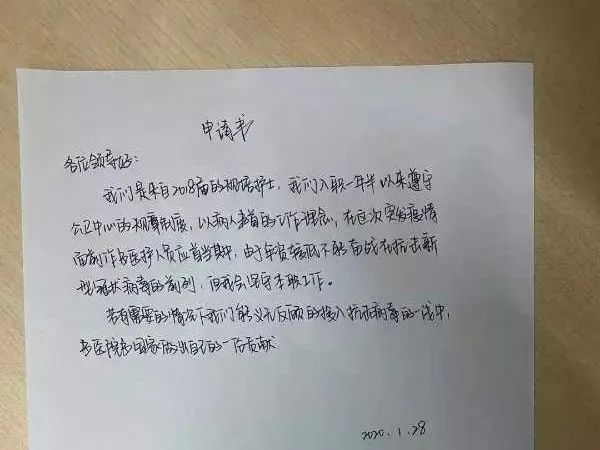 申请书
各位领导好:
我们是来自2018届的规培护士,我们入职一年半以来遵守
公卫中心的规章制度,以病人为首的工作理念,在这次突发疫情
面前作为医护人员应首当期中,由于年资较低不能奋战在抗击新
型冠状病毒的前列,但我会坚守本职工作。
若有需要的情况下我们能义无反顾的投入抗击病毒的一线中,
为医院为国家做出自己的一份贡献
2020.1.28